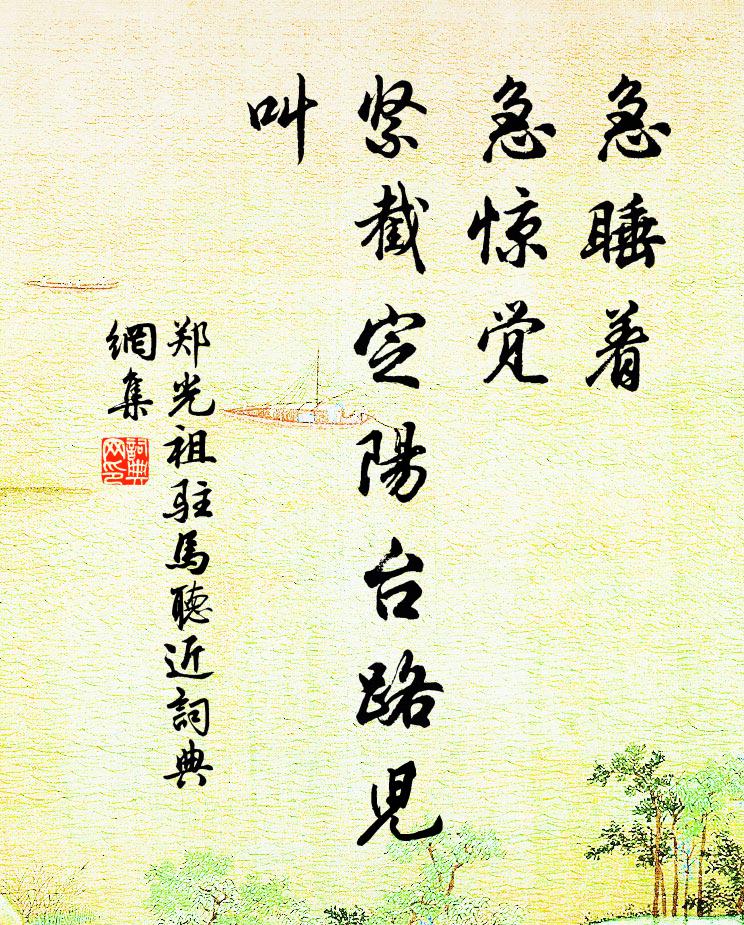 急睡着
急惊觉
紧截定陽台路児
叫
郑光祖驻馬聴近詞典
網集
詞典
网印